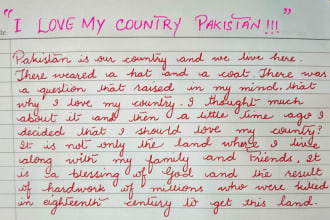 "I LOVE MY COUNTRY PAKISTAN!!!"
Pakistan is our country and we live here.
There weared a hat and a coat. There was
a question that raised in my mind, that
why I love my country. I thought much
about it and then a little time ago I
decided that I should love my country?
It is not only the land where I live
along with my family and friends. It
is a blessing of God and the result
of hardwork of millions who were killed
in eighteenth century to get this land.